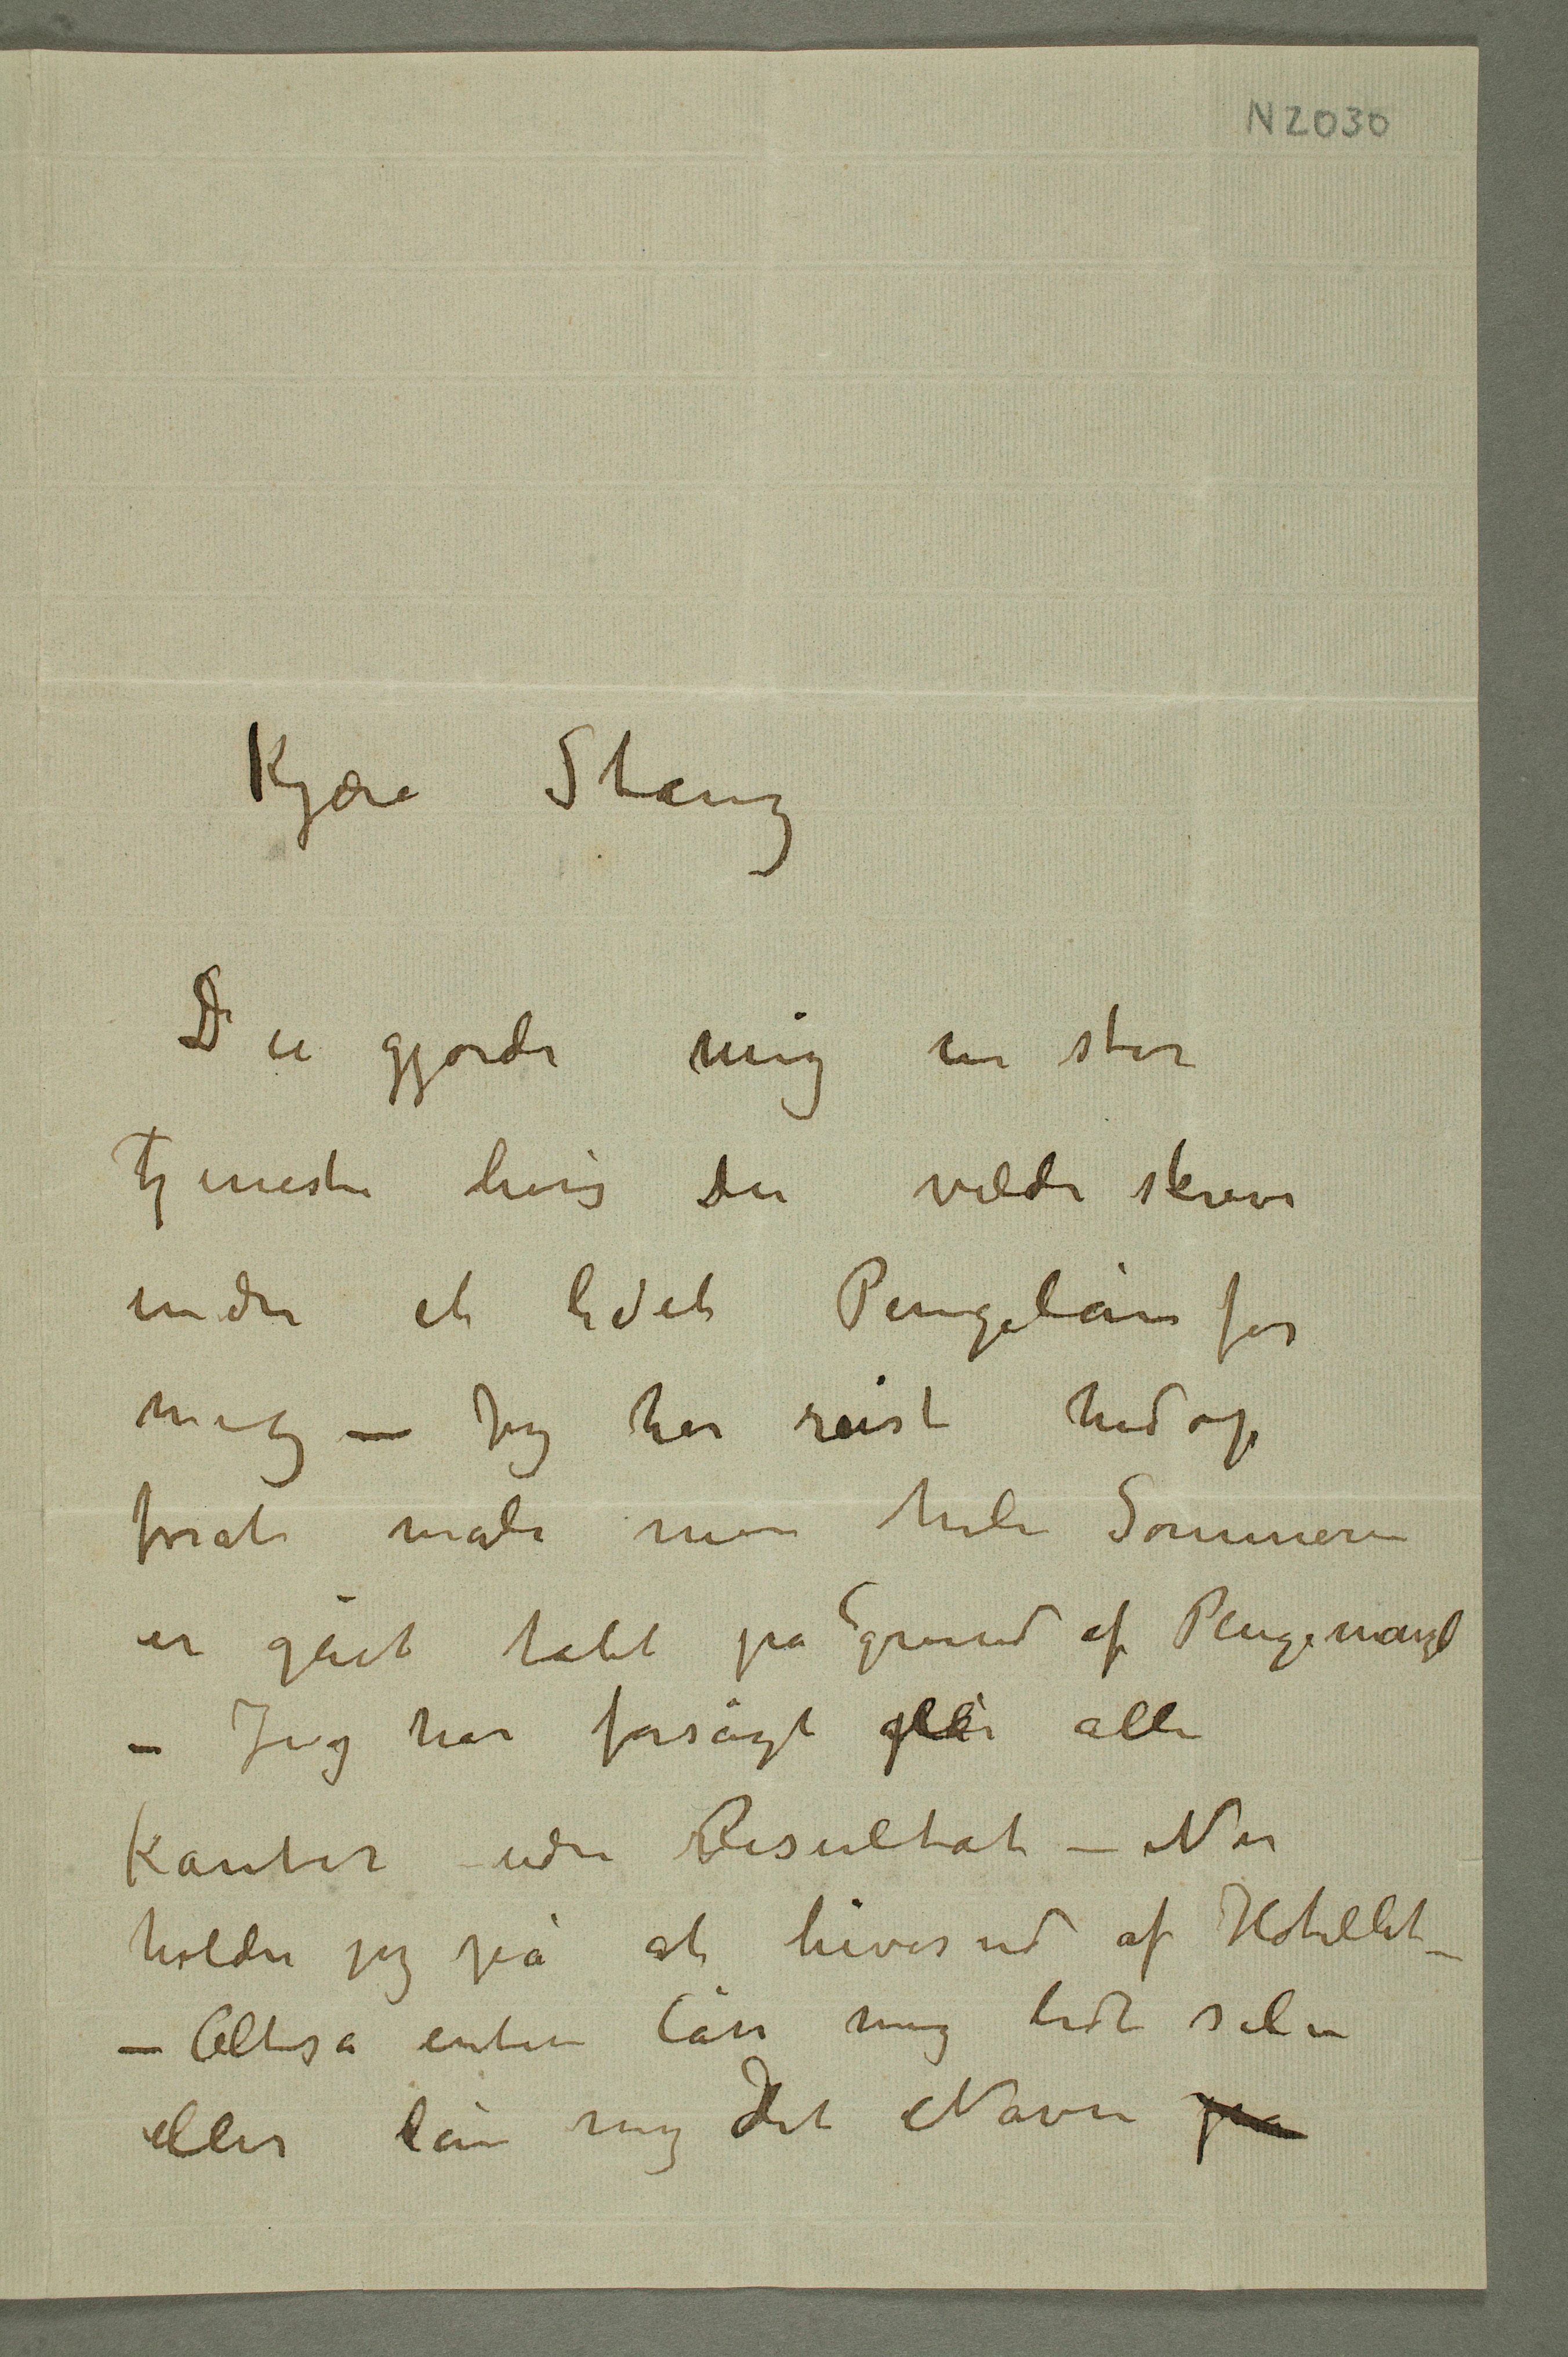 N 2030
Kjære Stang
Du gjorde mig en stor
Tjeneste hvis Du vilde skrive
under et lidet Pengelån for
mig – Jeg har reist hidop
forat male men hele Sommeren
er gået tabt på Grund af Pengemangl
– Jeg har forsøgt alle
Kanter uden Resultat – Nu
holder jeg på at hives ud af Hotellet –
– Altså enten lån mig lidt selv
eller lån mig Dit Navn på